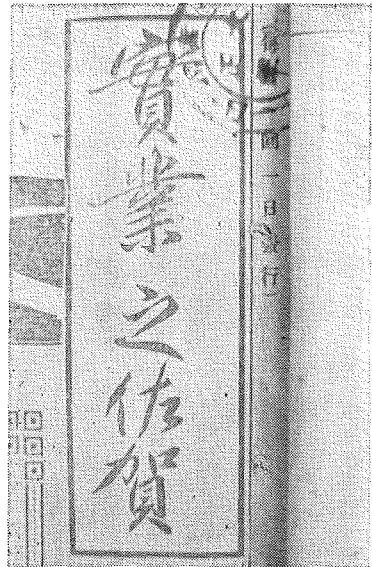 實業之佐賀
回一日發行）